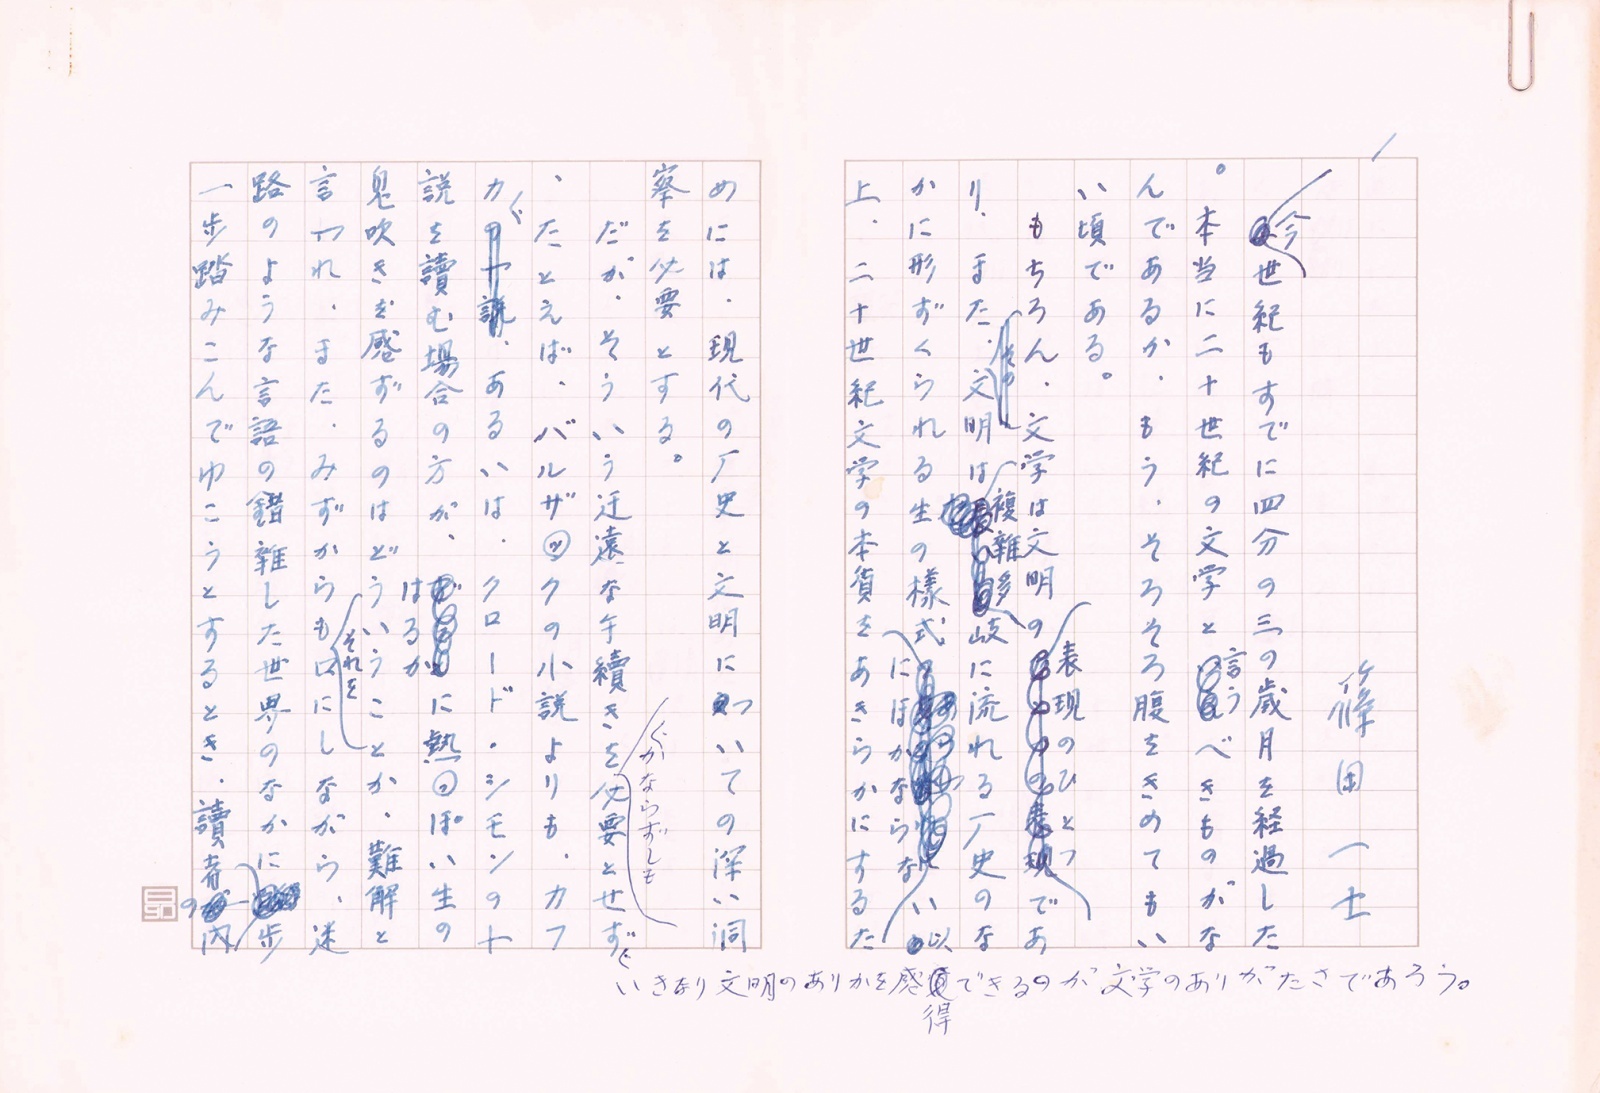 篠田一士
今世紀もすでに四分の三の歳月を経過した
。本当に二十世紀の文学と言うべきものがな
んであるか、もう、そろそろ腹をきめてもい
い頃である。
もちろん、文学は文明の表現のひとつであ
り、また、文明は複雑多岐に流れる厂史のな
かに形ずくられる生の様式にほかならない以
上、二十世紀文学の本質をあきらかにするた
めには、現代の厂史と文明についての深い洞
察を必要とする。
だが、そういう迂遠な手續きをかならずしも必要とせず
いきなり文明のありかを感得できるのが文学のありがたさであろう。
、たとえば、バルザックの小説よりも、カフ
カ、あるいは、クロード・シモンの小
説を讀む場合の方が、はるかに熱っぽい生の
息吹きを感ずるのはどういうことか、難解と
言われ、また、みずからもそれを口にしながら、迷
路のような言語の錯雑した世界のなかに歩
一歩踏みこんでゆこうとするとき、讀者の内